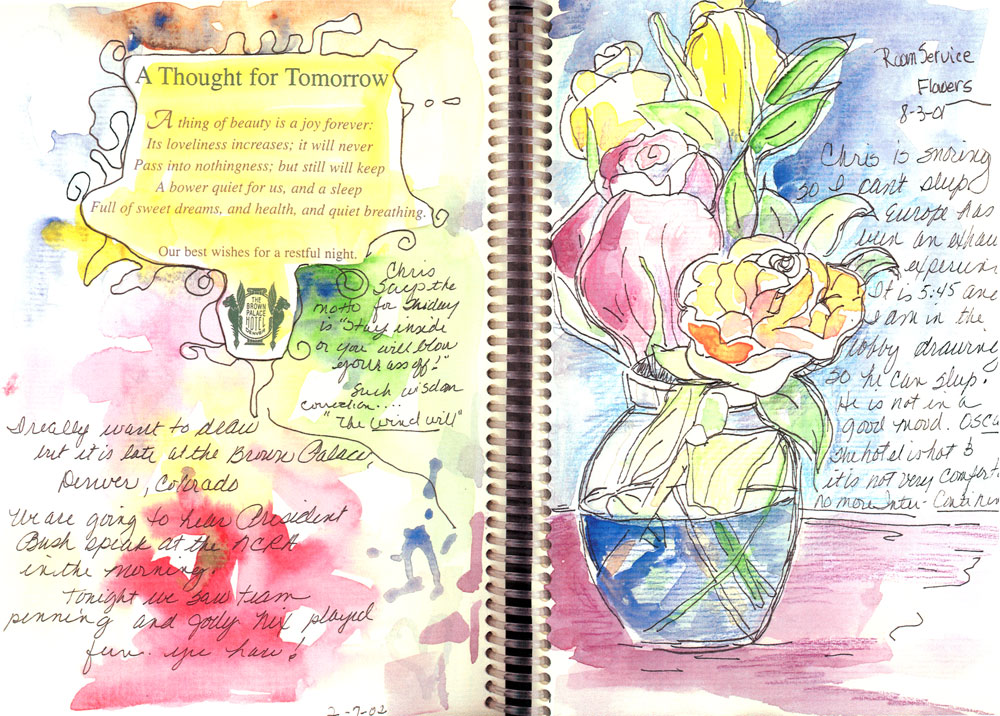 A Thought for Tomorrow
A thing of beauty is a joy forever:
Its loveliness increases; it will never
Pass into nothingness; but still will keep
A bower quiet for us, and a sleep
Full of sweet dreams, and health, and quiet breathing.
Our best wishes for a restful night.
THE
BROWN
PALACE
HOTEL
DENVER
Chris
says the
motto for Friday
is "Stay inside
or you will blow
your ass off!"
Such wisdom
correction...
"The wind will"
I really want to draw
but it is late at the Brown Palace,
Denver, Colorado
We are going to hear President
Bush speak at the NCBA
in the morning.
Tonight we saw team
penning and Jody Nix played
fun. yee haw!
2-7-02
Room Service
Flowers
8-3-01
Chris is snoring
so I can't sleep
Europe has
been an
It is 5:45 and
I am in the
lobby drawing
so he can sleep.
He is not in a
good mood.
The hotel is what
it's not very
No more Inter-